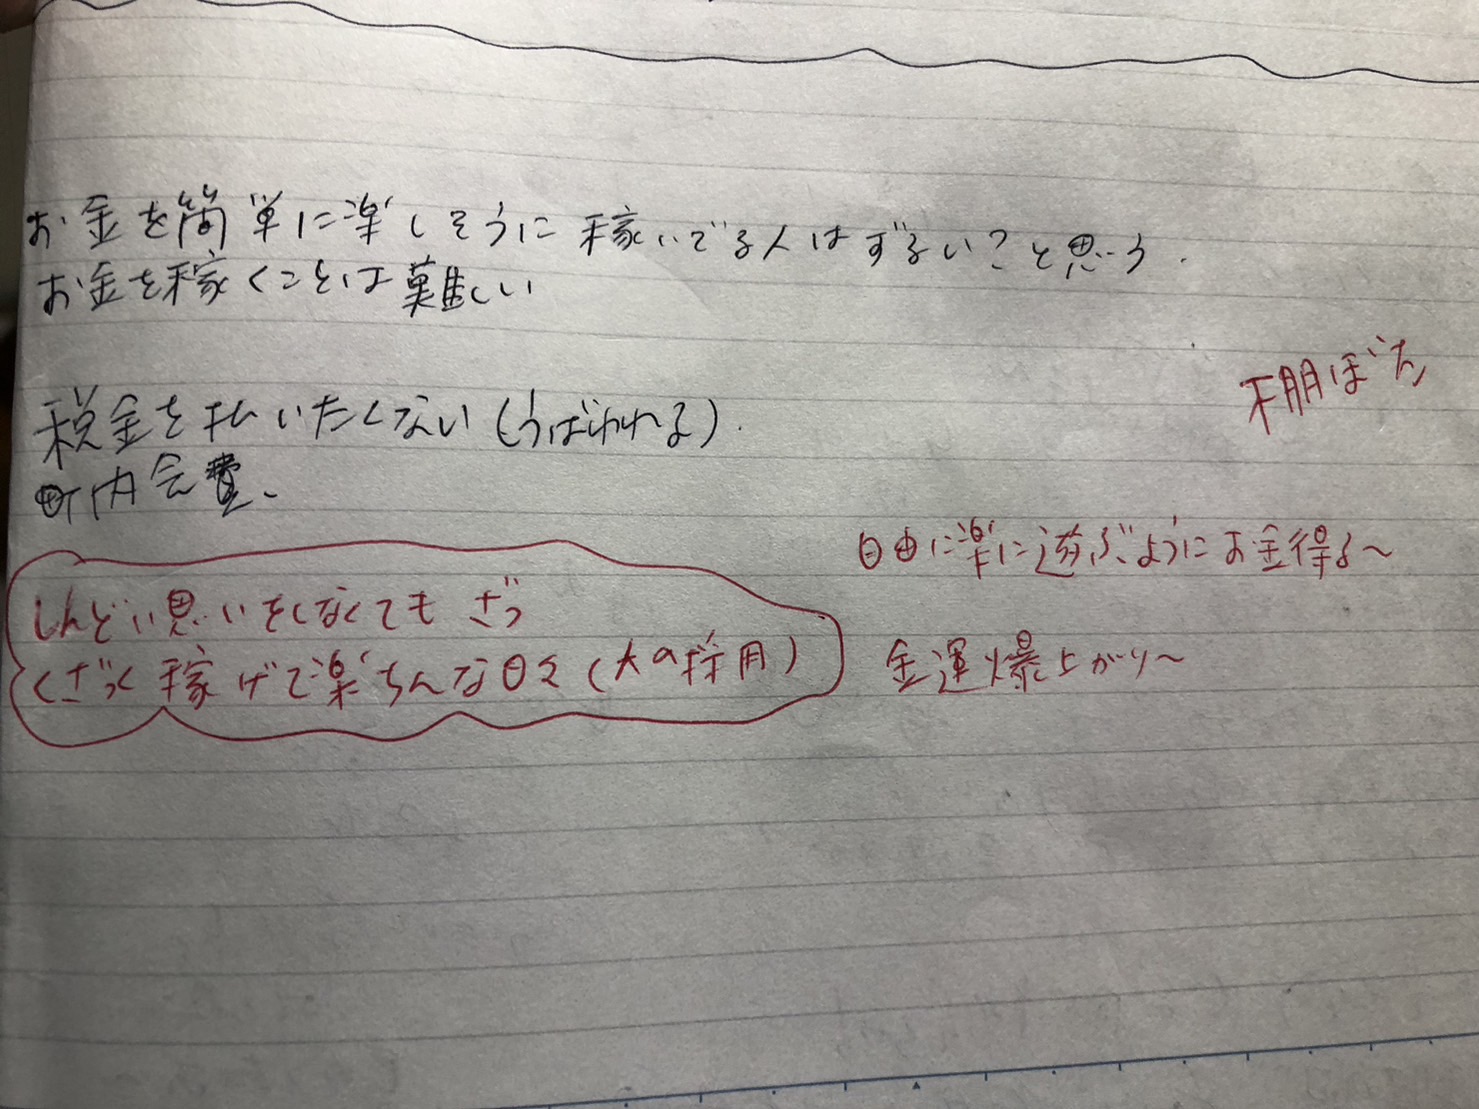 お金を簡単に楽しそうに稼いでる人はずるい?と思う.
お金を稼ぐことは難しい
棚ぼた
税金を払いたくない(うばわれる).
町内会費、
自由に楽に遊ぶようにお金得る〜
しんどい思いをしなくてもざっ
くざく稼げて楽ちんな日々(犬の採用)
金運爆上がり〜